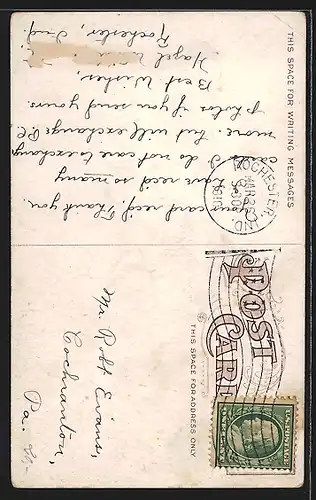 THIS SPACE FOR WRITING MESSAGES
Your card recd. Thank you.
have recd so many
cards I do not care to exchange
more. but will exchange P.C.
photos if you send yours.
Best Wishes,
Hazel
Rochester, Ind.
ROCHESTER, IND.
MAR 22
1910
POST CARD
THIS SPACE FOR ADDRESS ONLY
U.S. POSTAGE
Mr. Robt Evans,
Cochranton,
Pa.